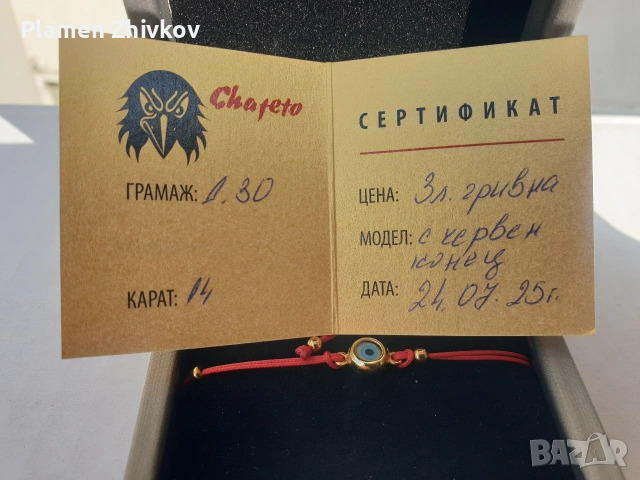 Plamen Zhivkov
Chafeto
ГРАМАЖ: 1.30
КАРАТ: 14
СЕРТИФИКАТ
ЦЕНА: Зл. гривна
МОДЕЛ: с червен
конец
ДАТА: 24.07.25г.
BAZAR